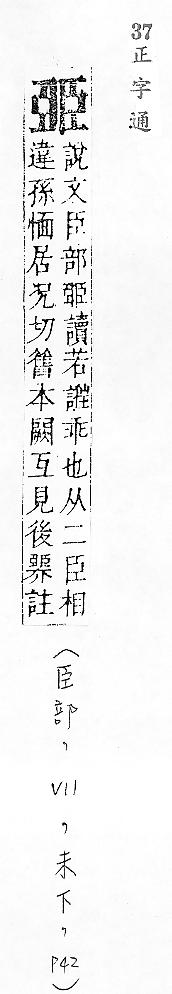 37正字通
臦
說文臣部臦讀若誑乖也从二臣相
違孫愐居况切舊本闕互見後臩註
（臣部，VII，未下，P42）